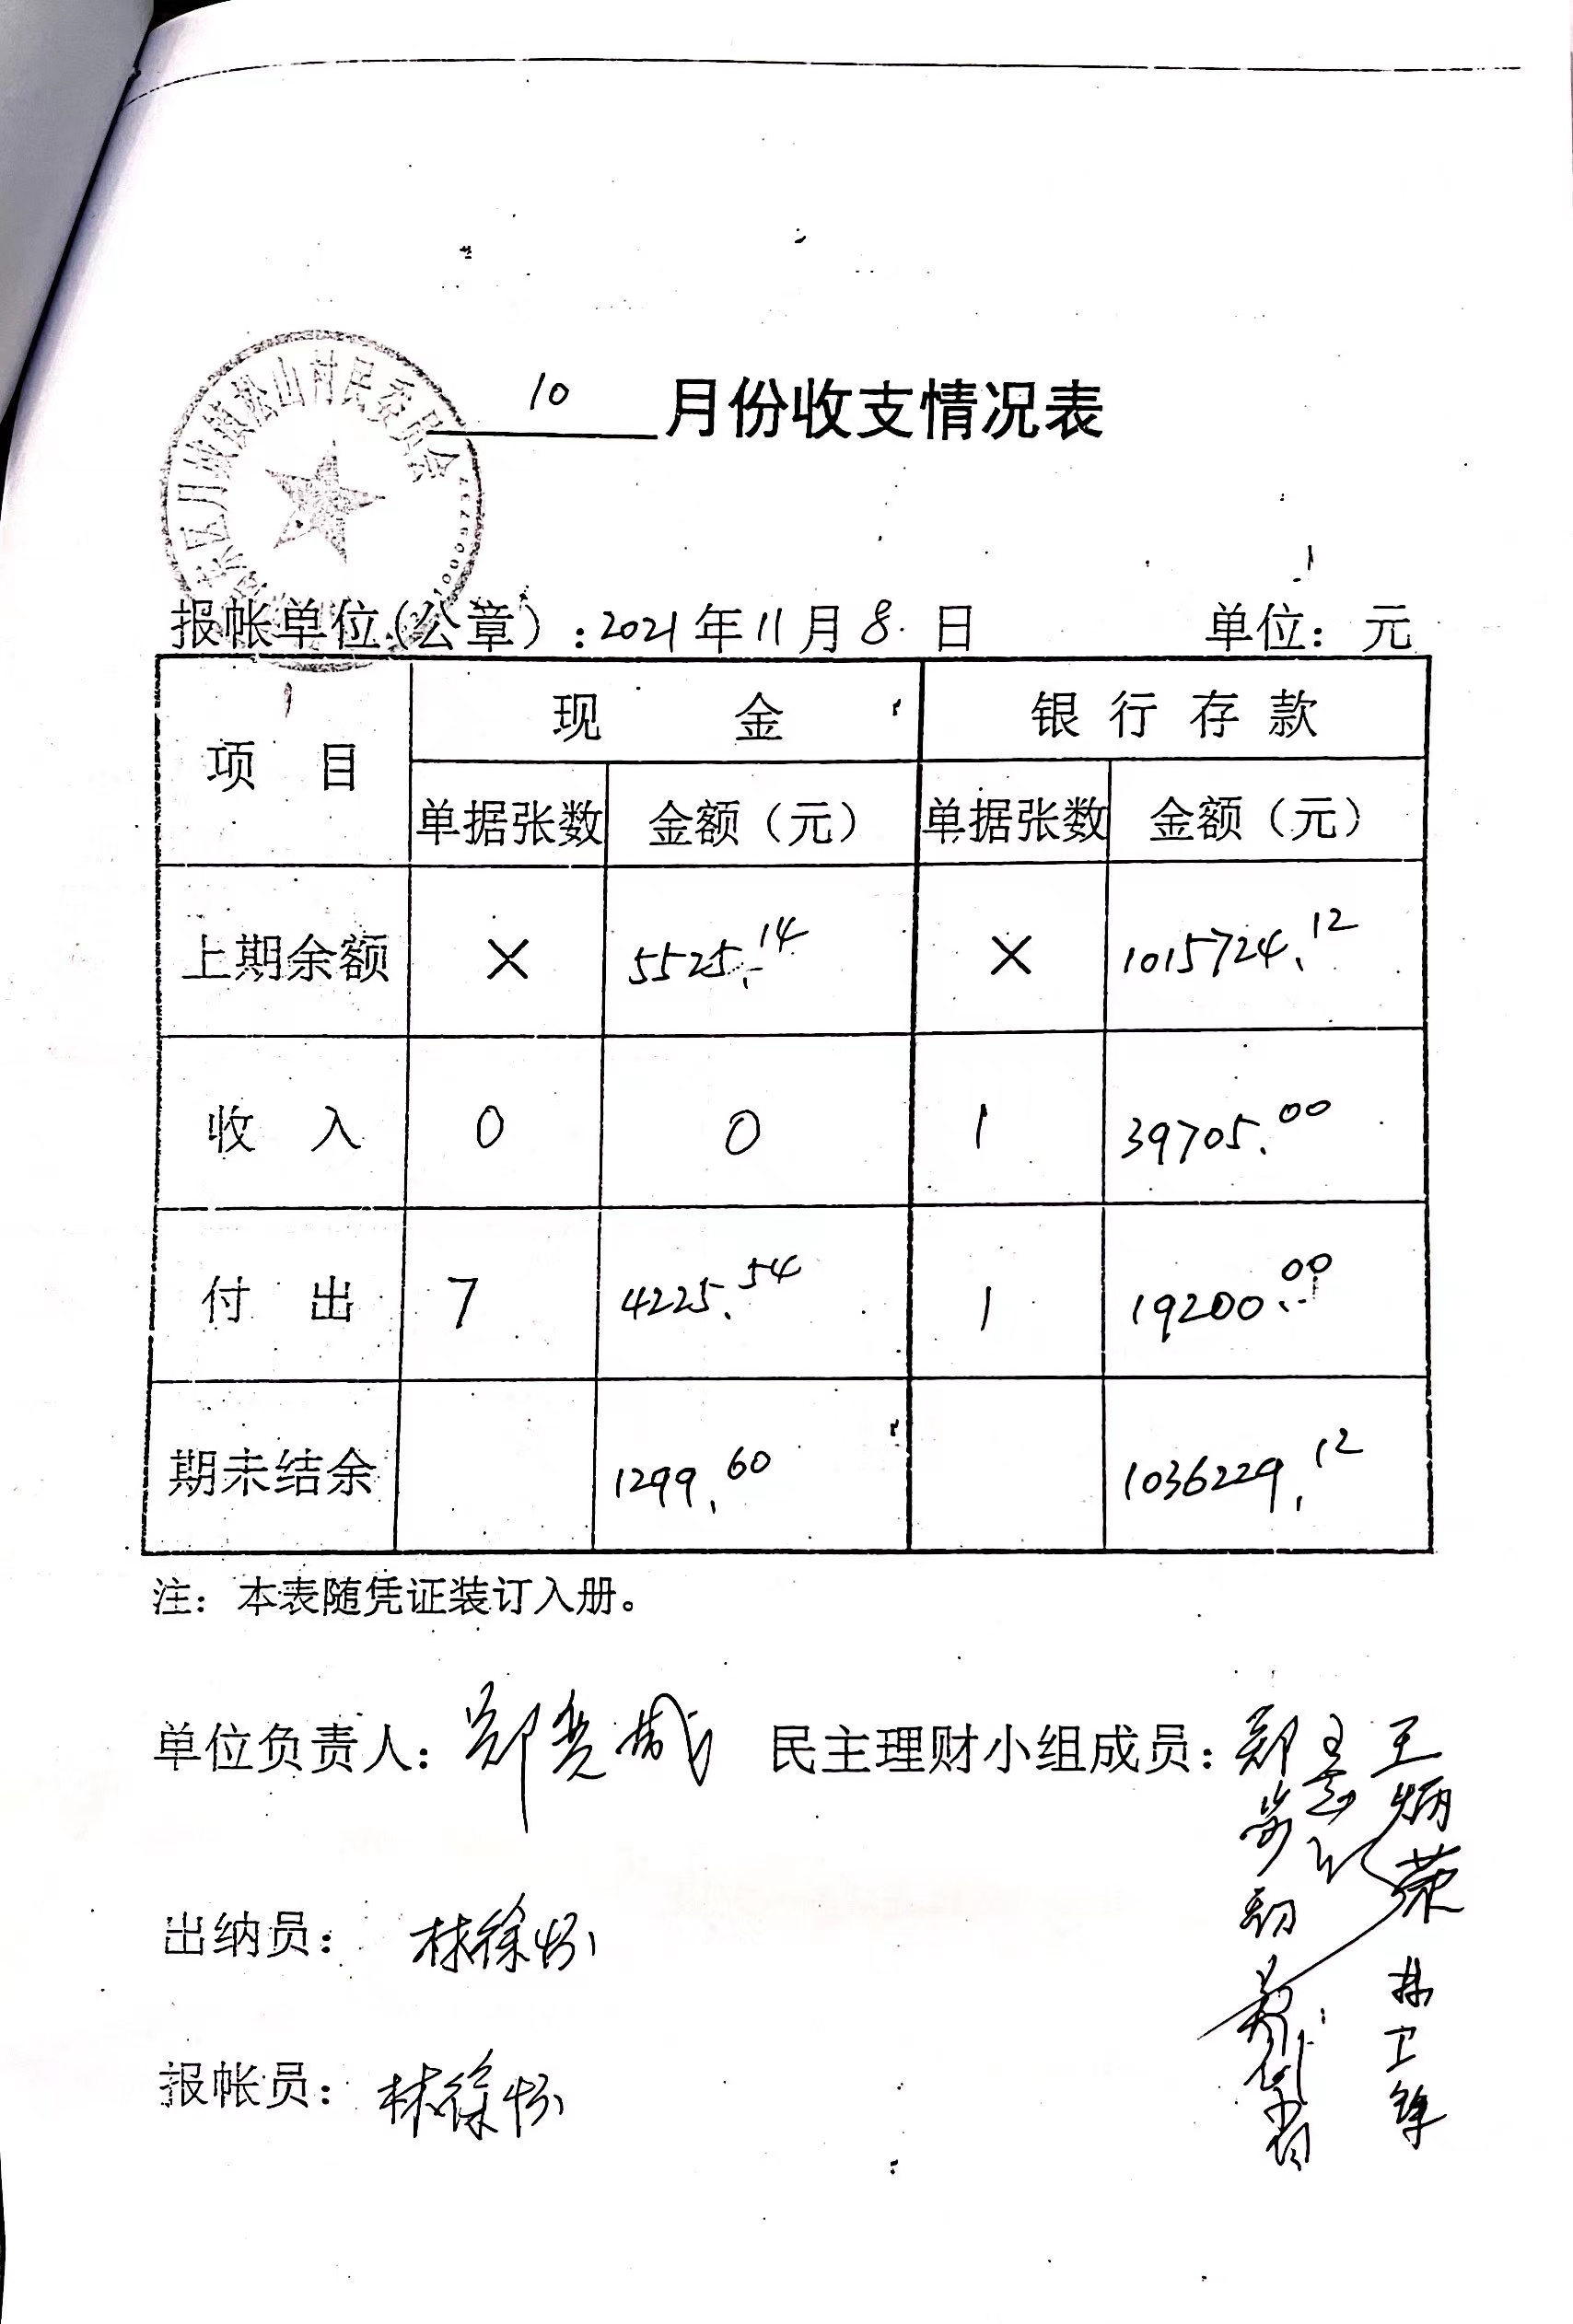 10 月份收支情况表
区月城镇松山村民委员会
报帐单位(公章):2021年11月8日 单位:元
项 目 现 金 银行存款
单据张数 金额(元) 单据张数 金额(元)
上期余额 × 5525.14 × 1015724.12
收 入 0 0 1 39705.00
付 出 7 4225.54 1 19200.00
期未结余 1299.60 1036229.12
注:本表随凭证装订入册。
单位负责人: 民主理财小组成员: 王炳荣
出纳员: 林徐
报帐员: 林徐